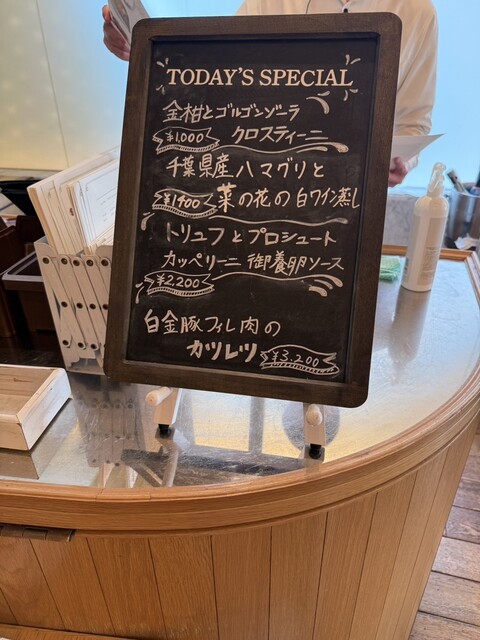 TODAY'S SPECIAL
金柑とゴルゴンゾーラ
¥1,000 クロスティーニ
千葉県産ハマグリと
¥1,400 菜の花の白ワイン蒸し
トリュフとプロシュート
カッペリーニ 御養卵ソース
¥2,200
白金豚フィレ肉の
カツレツ ¥3,200